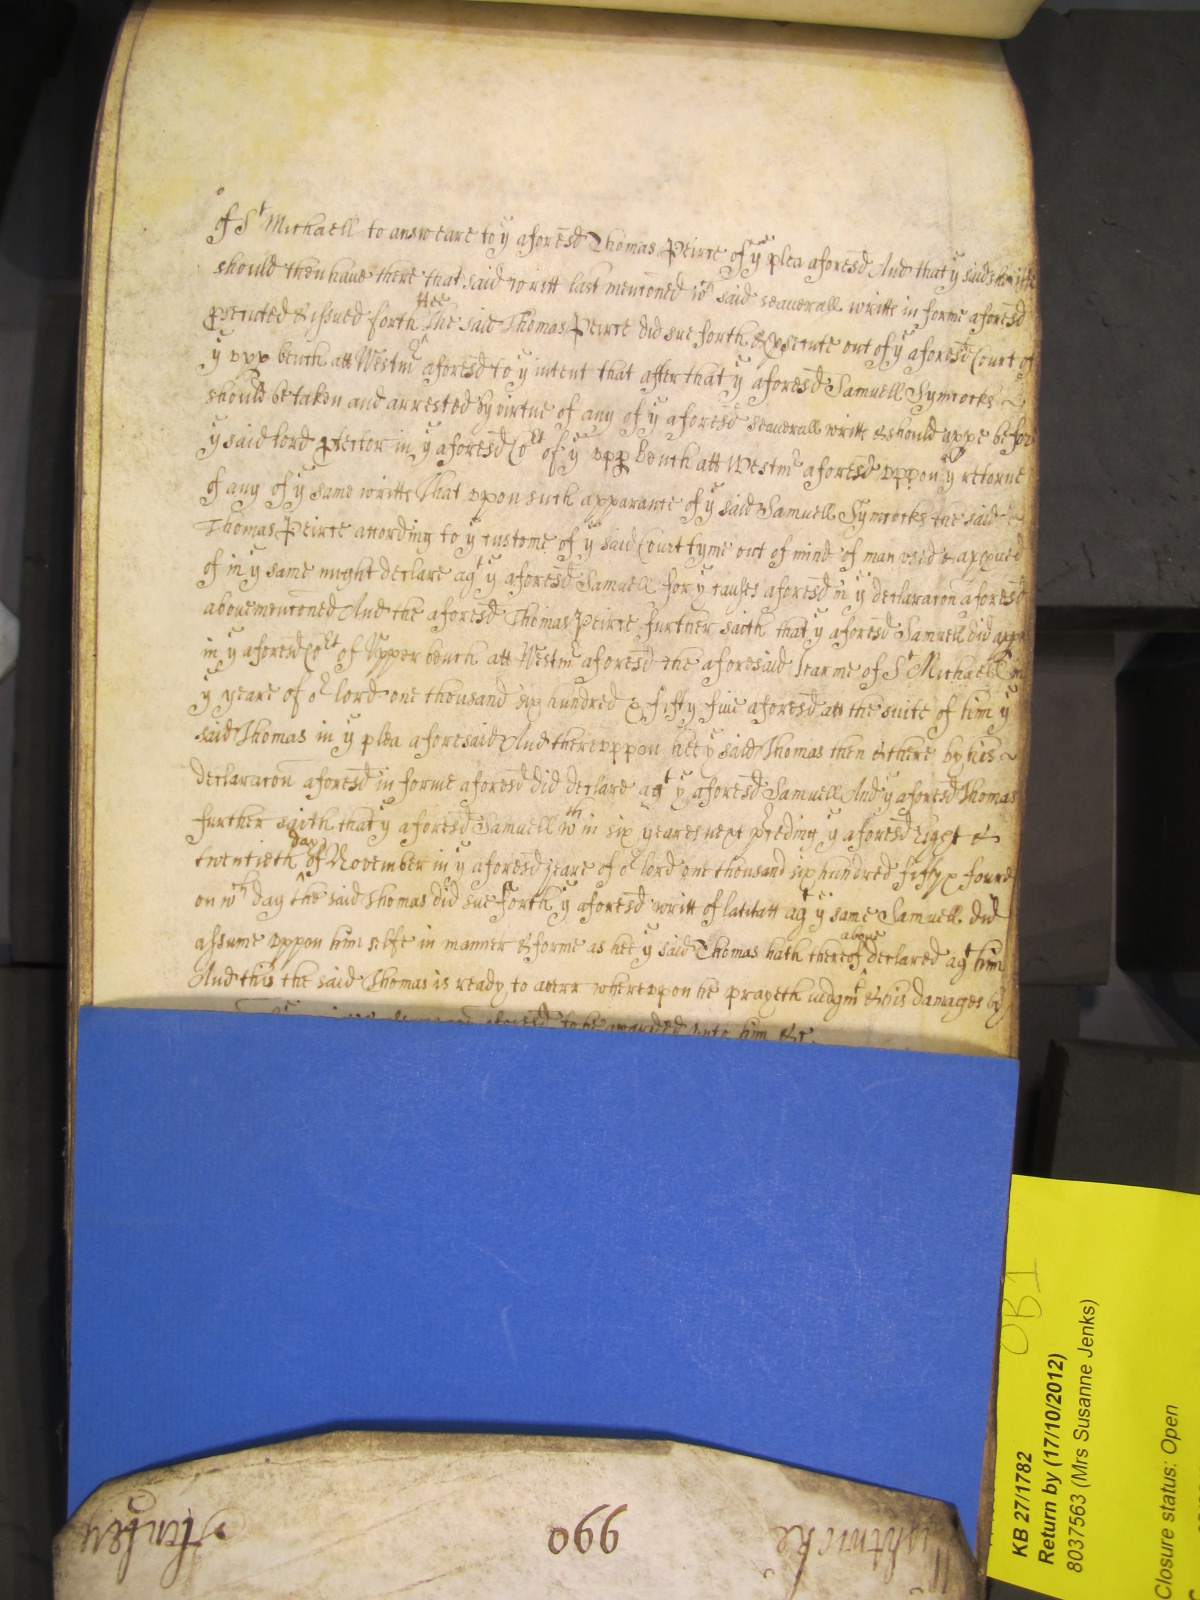 of St Michaell to answeare to ye aforesd Thomas Peirce of ye plea aforesd And that ye said writts
should then have there that said writt last mencioned wch said seauerall writts in forme aforesd
psecuted & issued forth Hee the said Thomas Peirce did sue forth & psecute out of ye aforesd Court of
ye upp bench att Westmr aforesd to ye intent that after that ye aforesd Samuell Symcocks
should be taken and arrested by virtue of any of ye aforesd seauerall writts & should appe before
ye said lord ptector in ye aforesd Cort of ye upp bench att Westmr aforesd uppon ye retorne
of any of ye same writts That upon such apparance of ye said Samuell Symcocks the said
Thomas Peirce according to ye custome of ye said Court tyme out of mind of man used & appued
of in ye same might declare agt ye aforesd Samuell for ye causes aforesd in ye declaracon aforesd
abovementioned And the aforesd Thomas Peirce further saith that ye aforesd Samuell did appe
in ye aforesd Cort of Upper bench att Westmr aforesd the aforesaid Tearme of St Michaell in
ye yeare of or lord one thousand six hundred & fifty five aforesd att the suite of him ye
said Thomas in ye plea aforesaid And thereuppon hee ye said Thomas then & there by his
declaracon aforesd in forme aforesd did declare agt ye aforesd Samuell And ye aforesd Thomas
further saith that ye aforesd Samuell wthin six yeares next preding ye aforesd Eight &
twentieth day of November in ye aforesd yeare of or lord one thousand six hundred fifty & foure
on wch day the said Thomas did sue forth ye aforesd writt of latitatt agt ye same Samuell did
assume uppon him selfe in manner & forme as hee ye said Thomas hath thereof above declared agt him
And this the said Thomas is ready to averr whereuppon he prayeth iudgmt & his damages by
aforesd to be awarded unto him &c.
990
OB1
KB 27/1782
Return by (17/10/2012)
8037563 (Mrs Susanne Jenks)
Closure status: Open